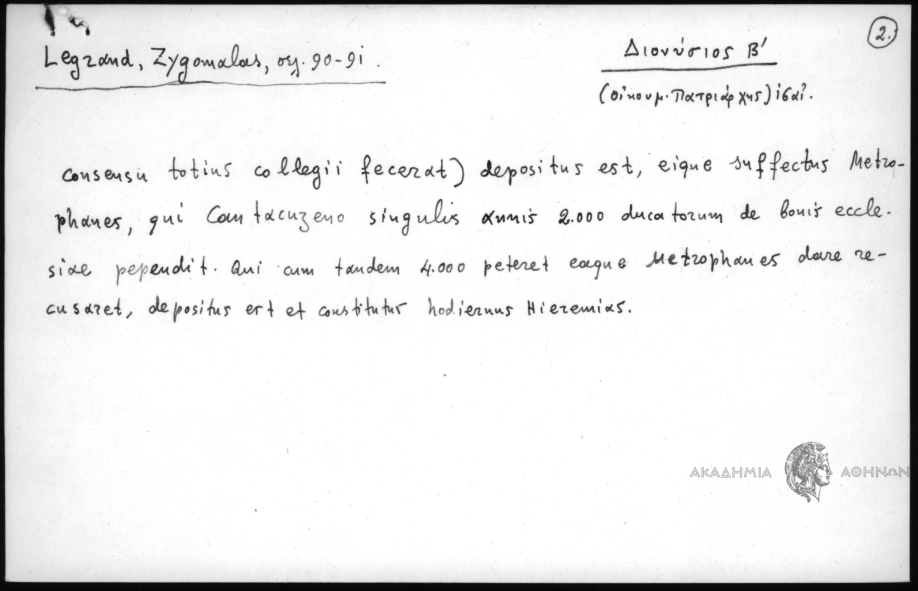 2.
Legrand, Zygomalas, σελ. 90-91.
Διονύσιος Β'
(Οἰκουμ. Πατριάρχης)
consensu totius collegii fecerat) depositus est, eique suffectus Metro-
phanes, qui Cantacuzeno singulis annis 2.000 ducatorum de bonis eccle-
siae pependit. Qui cum tandem 4.000 peteret eaque Metrophanes dare re-
cusaret, depositus est et constitutus hodiernus Hieremias.
ΑΚΑΔΗΜΙΑ ΑΘΗΝΩΝ